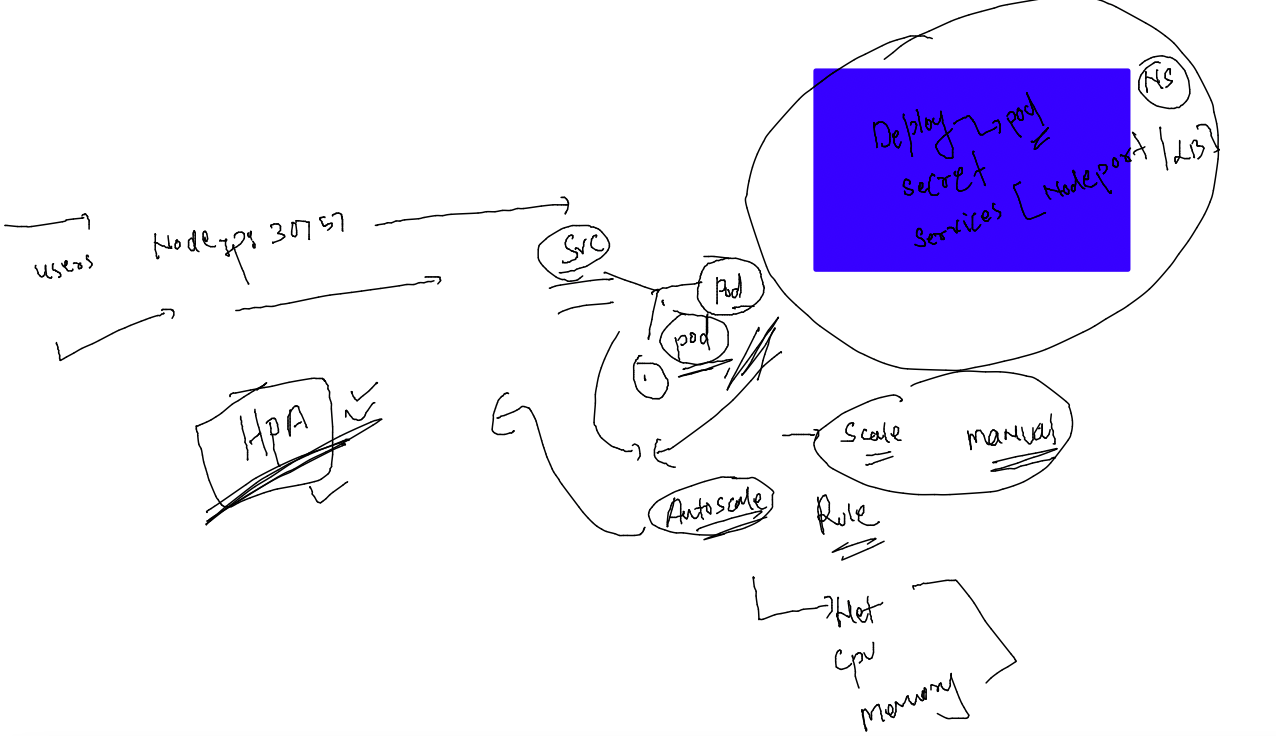 NS
Deploy pod
secret
services [ Nodeport / LB ]
users
30757
Svc
pod
pod
HPA
scale manual
Autoscale
Rule
Net
cpu
memory